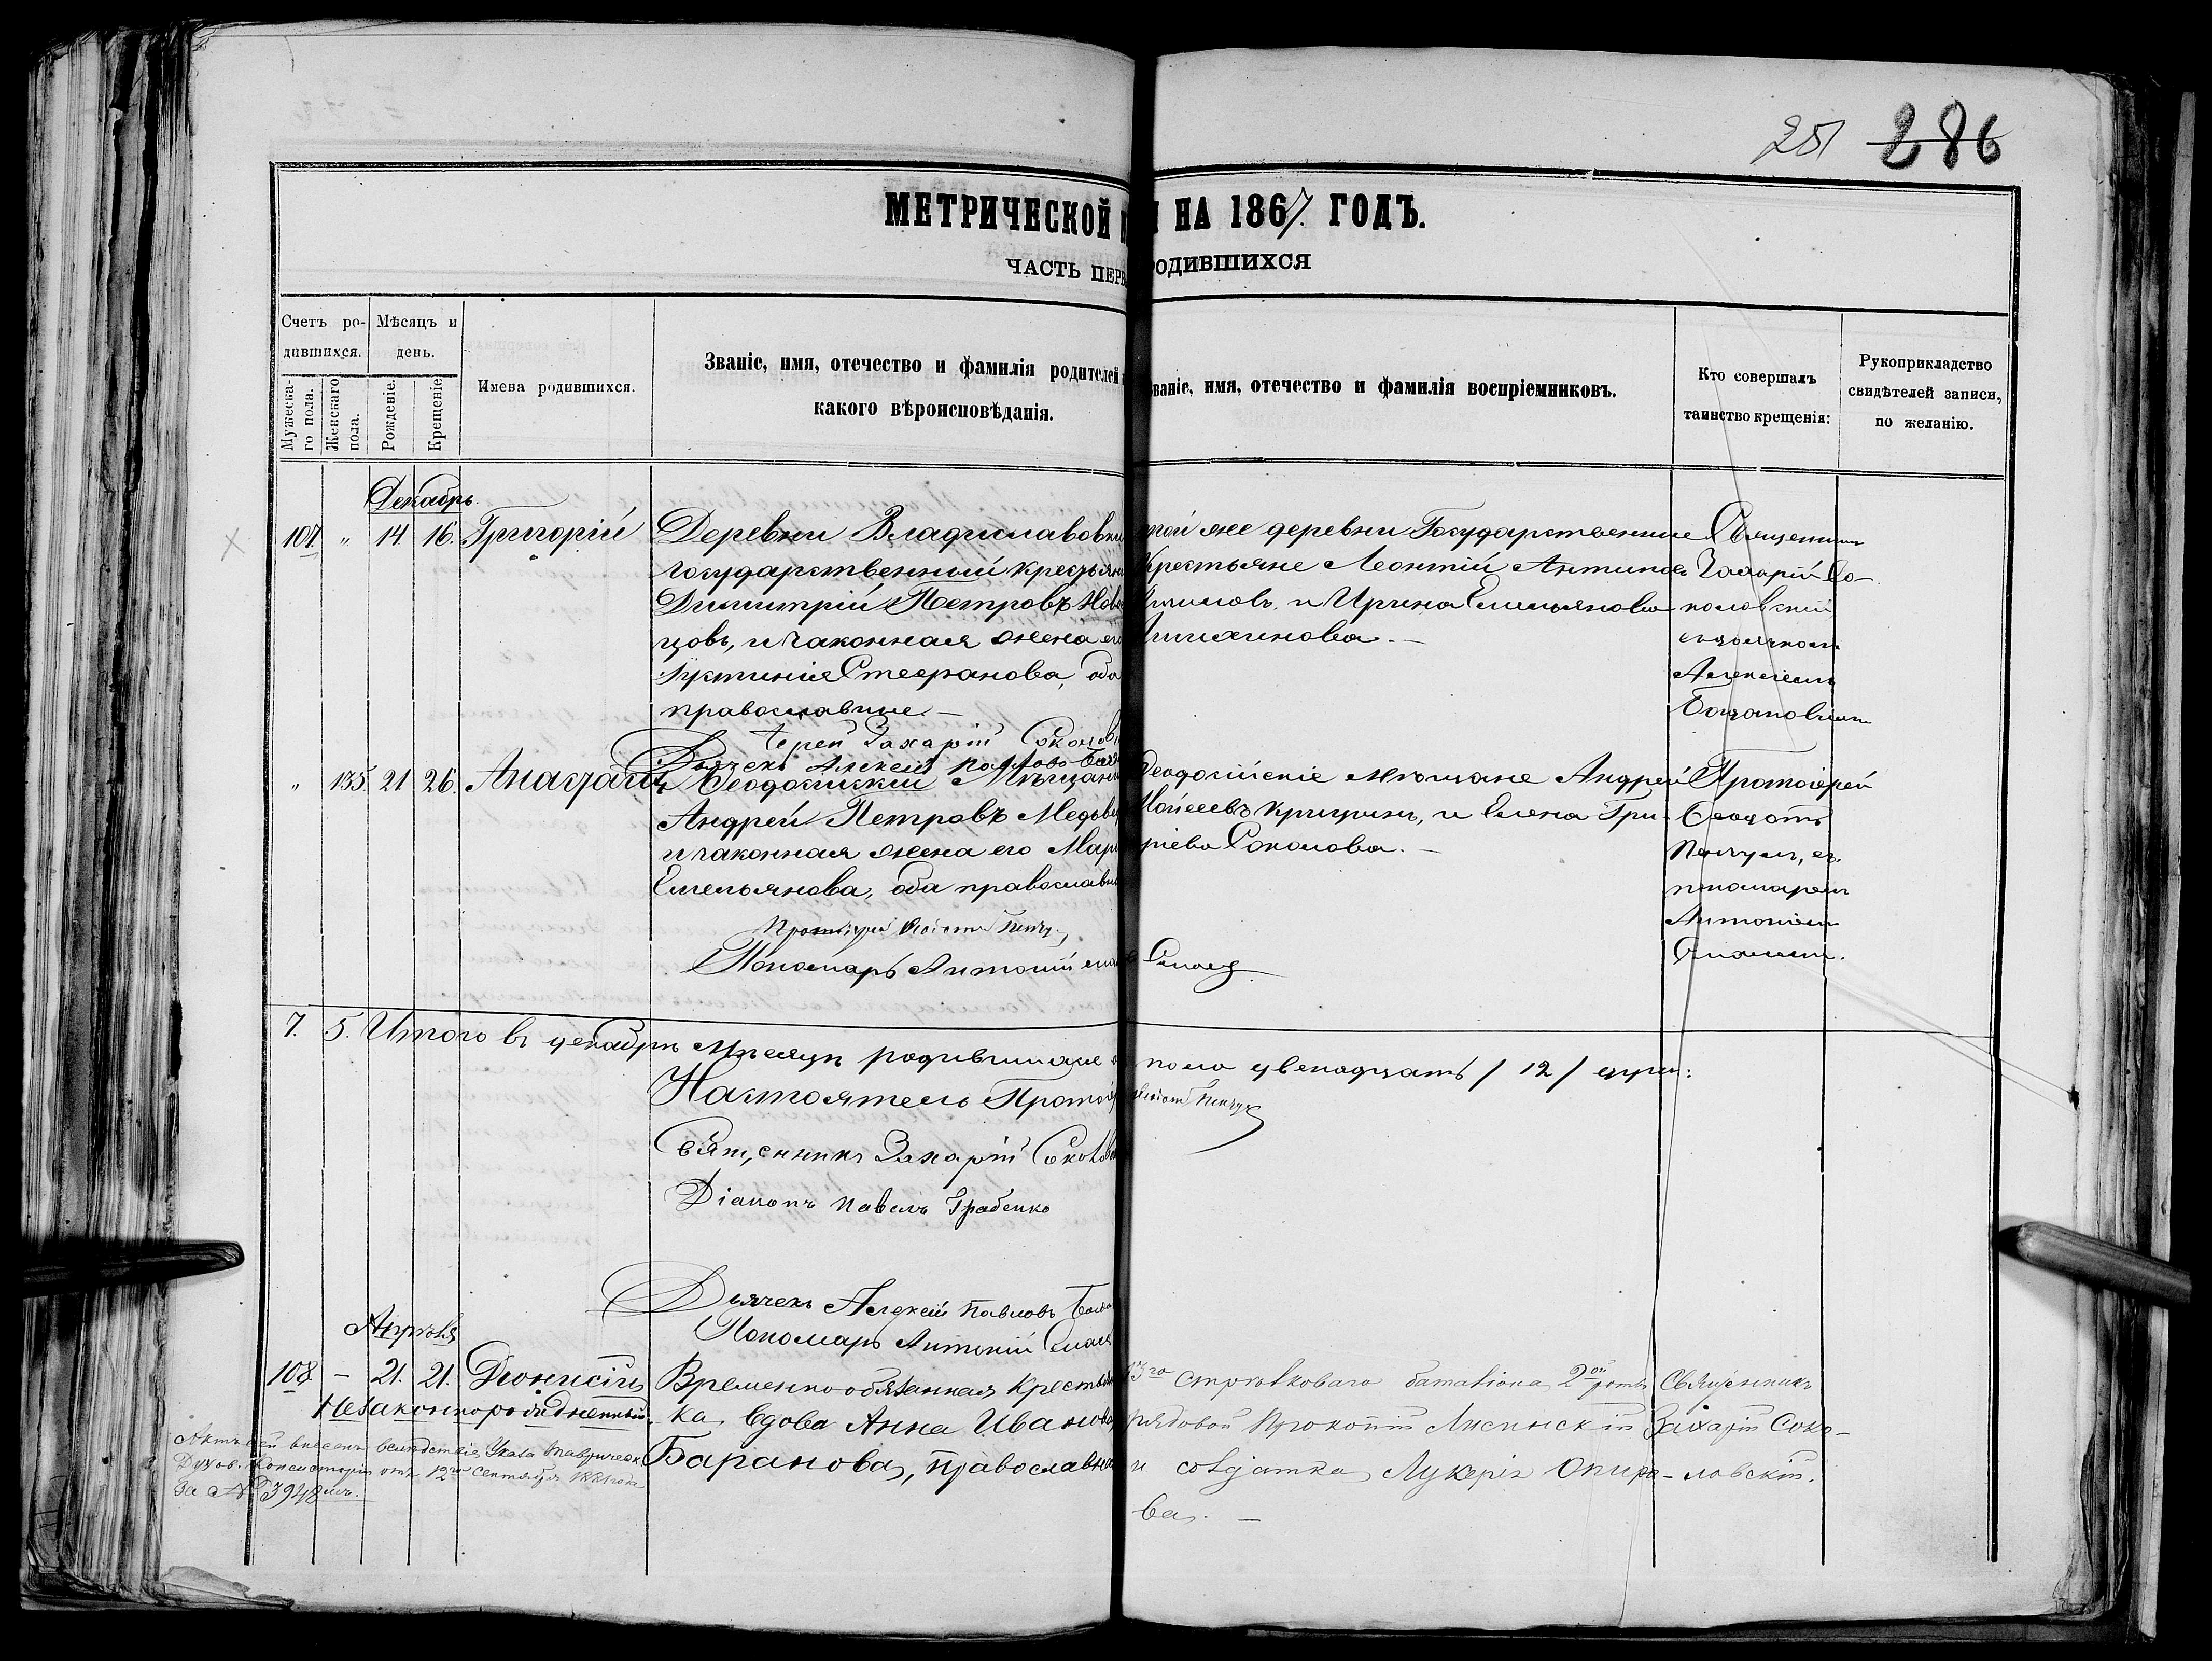 251 286
МЕТРИЧЕСКОЙ
НА 1867 ГОДЪ.
ЧАСТЬ ПЕРВ
ОДИВШИХСЯ
Счетъ ро-
дившихся.
Мужеска-
го пола.
Женскаго
пола.
Мѣсяцъ и
день.
Рожденіе.
Крещеніе.
Имена родившихся.
Званіе, имя, отечество и фамилія родителей
какого вѣроисповѣданія.
ваніе, имя, отечество и фамилія воспріемниковъ.
Кто совершалъ
таинство крещенія:
Рукоприкладство
свидѣтелей записи,
по желанію.
Декабрь.
107 " 14 16. Григорій
Деревни Владиславовки
государственный крестьян
Димитрій Петровъ Нов
цовъ, и законная жена ег
Стефанова, оба
православные. —
Іерей Захарій Соколов
Дьячекъ Алексѣй Павловъ
той же деревни Государственные
Крестьяне Леонтій Антипов
и Ирина Емельянова
Священник
Захарій Со-
коловскій
съ дьячкомъ
Алексіемъ
" 135. 21 26. Анастасія
Ѳеодосійскій Мѣщани
Андрей Петровъ Медвѣ
и законная жена его Мар
Емельянова, оба православн
Протоіерей
Пономарь Антоній
Ѳеодосійскіе мѣщане Андрей
Мойсеевъ и Елена Гри-
ріева Соколова. —
Протоіерей
Ѳеодотъ
съ
пономаремъ
Антоніем
7. 5. Итого въ декабрѣ мѣсяцѣ родившихся
пола двенадцать / 12 / душъ:
Настоятель Протоі
Священникъ Захарій Соколов
Діаконъ Павелъ Грабенко
Дьячекъ Алексѣй Павловъ
Пономарь Антоній
Апрѣля
108 — 21. 21. Діонисій
Незаконнорожденный.
Временно обязанная крестьян
ка, вдова Анна Иванова
Баранова, православна
3го стрѣлковаго баталіона 2ой роты
рядовой Прокопій
и солдатка Лукерія
ва. —
Священникъ
Захарій Соко-
ловскій.
Актъ сей внесенъ вслѣдствіе Указа Таврическ.
Духов. Консисторіи отъ 12го Сентября
за № 3948мъ.